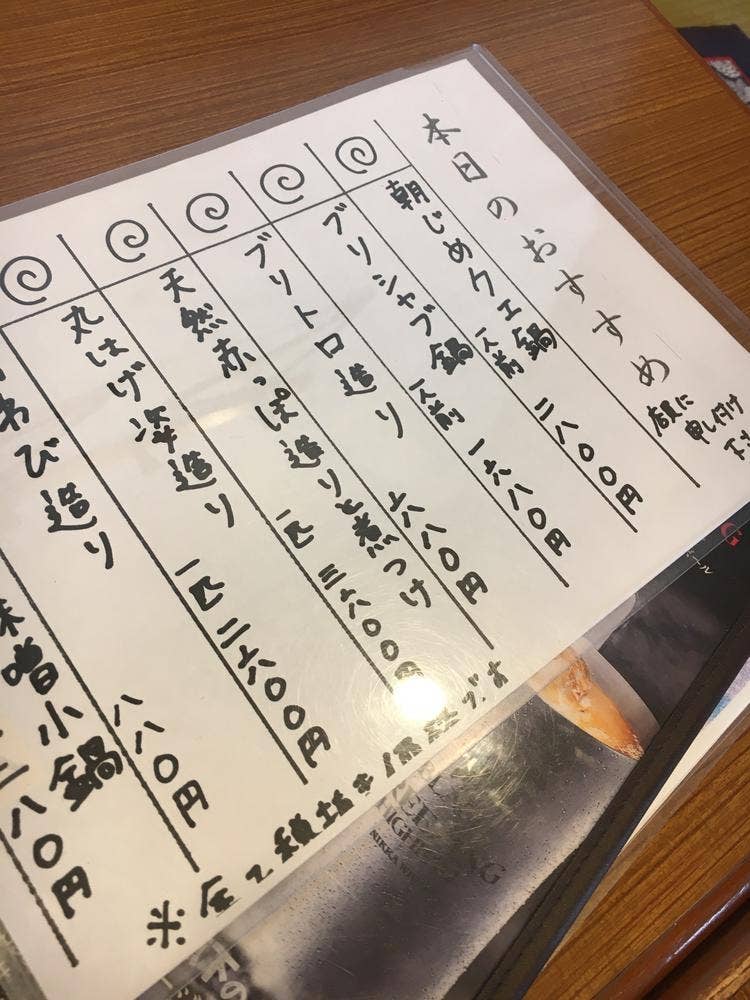 本日のおすすめ
店員に
申し付け
下さ
朝じめクエ鍋 一人前 二八〇〇円
ブリシャブ鍋 一人前 一六八〇円
ブリトロ造り 六八〇円
天然赤っぱ造りと煮つけ 一匹 三六〇〇円
丸はげ姿造り 一匹 二六〇〇円
わび造り 八八〇円
味噌小鍋
八〇円
※全て税抜き価格です
HIGH
NIKKA W